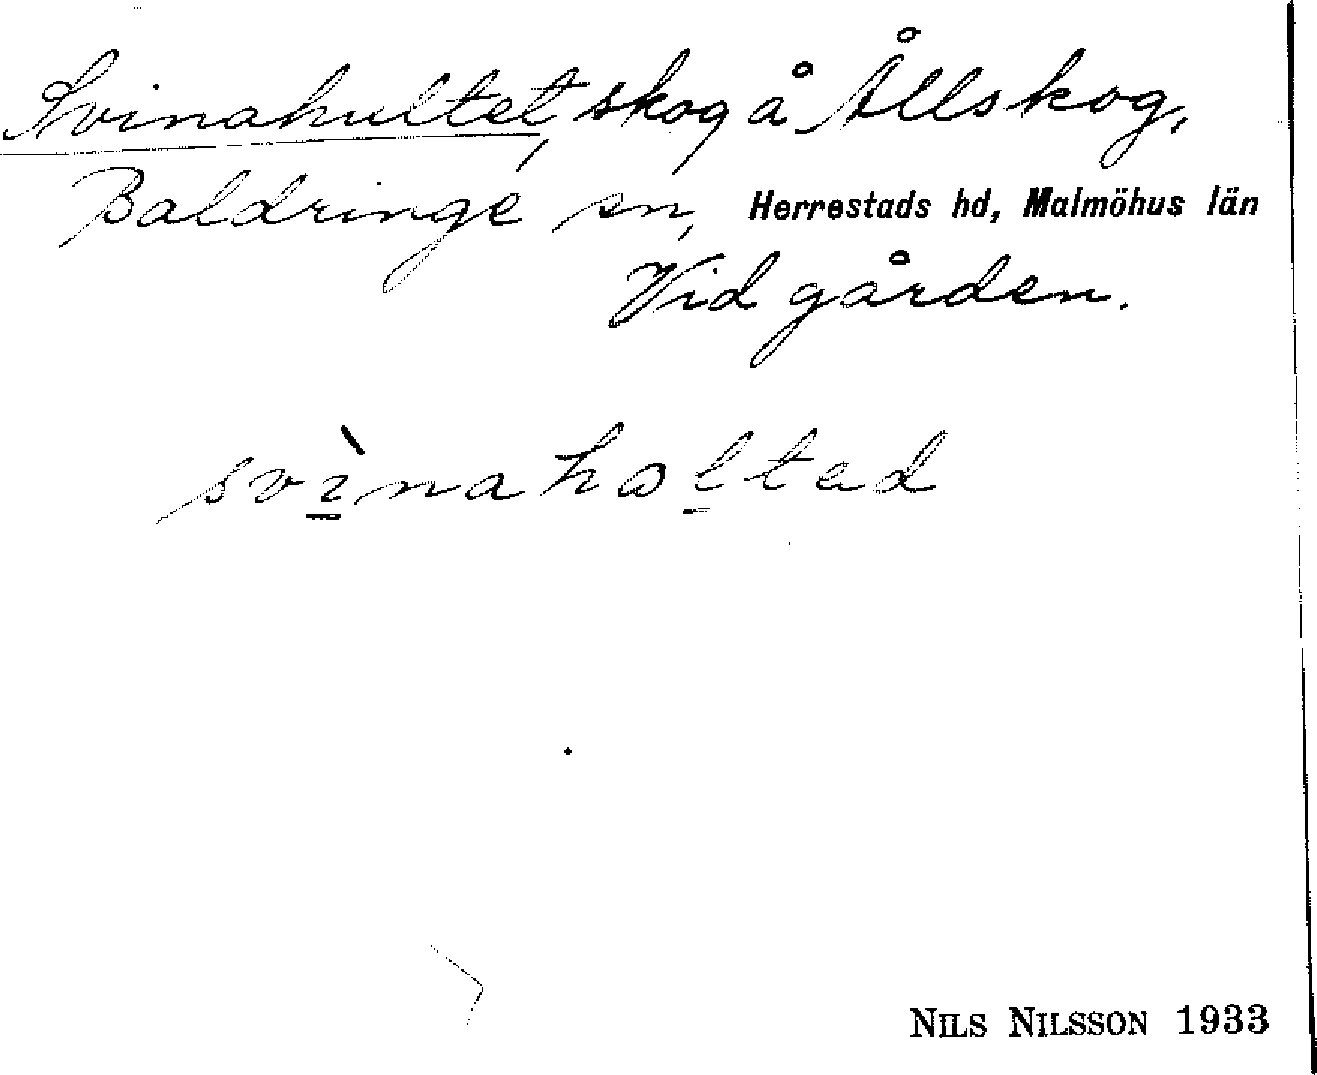 Svinahultet, skog å Ållskog,
Baldringe sn, Herrestads hd, Malmöhus län
Vid gården.
svìnahaltad
NILS NILSSON 1933